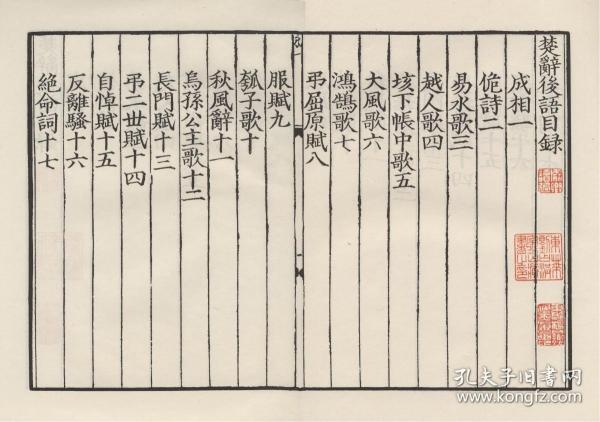 楚辭後語目録
成相一
佹詩二
易水歌三
越人歌四
垓下帳中歌五
大風歌六
鴻鵠歌七
弔屈原賦八
服賦九
瓠子歌十
秋風辭十一
烏孫公主歌十二
長門賦十三
弔二世賦十四
自悼賦十五
反離騷十六
絶命詞十七
孔夫子旧书网
www.kongfz.com